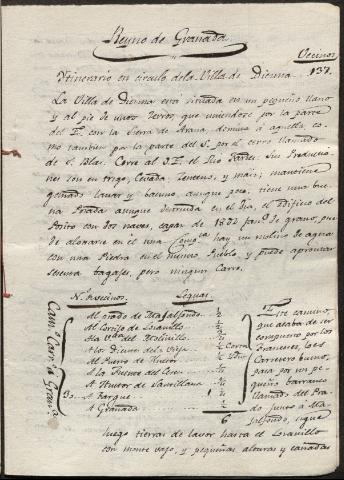 Reyno de Granada.
Vecinos
Itinerario en circulo dela Villa de Diezma. 137.
La Villa de Diezma esta situada en un pequeño llano
y al pie de unos Zerros, que uniendose por la parte
del E. con la Sierra de Arana, domina á aquella, co-
mo tambien por la parte del S. por el cerro llamado
de S. Blas. Corre al S.E. el Rio Fardes. Sus produccio-
nes son en trigo, Cevada, Zenteno, y maiz; mantiene
ganado lanar y bacuno, aunque poco; tiene una bue-
na Posada aunque destruida en el dia, el edificio del
Posito con dos naves, capaz de 1802 fans. de grano, pue-
de alojarse en el una Comp.a hay un molino de agua
con una Piedra en el mismo Pueblo, y puede aprontar
sesenta bagages, pero ningun Carro.
N.o de vecinos. Leguas.
Cam.o Carr.o á Gran.a
Al prado de Majalfondo
Al Cortijo de
á la V.ta del Molinillo
Al Puerto de Huetor
A la Fuente del
A Huetor de Santillana
30. A Fargue 1
A Granada
6
Este camino,
que acaba de ser
compuesto por los
Franceses, es
Carretero bueno,
pasa por un pe-
queño barranco
llamado del Pra-
do junto á Ma-
jalfondo, sigue
luego tierras de lavor hasta el
con monte vajo, y pequeñas alturas y cañadas